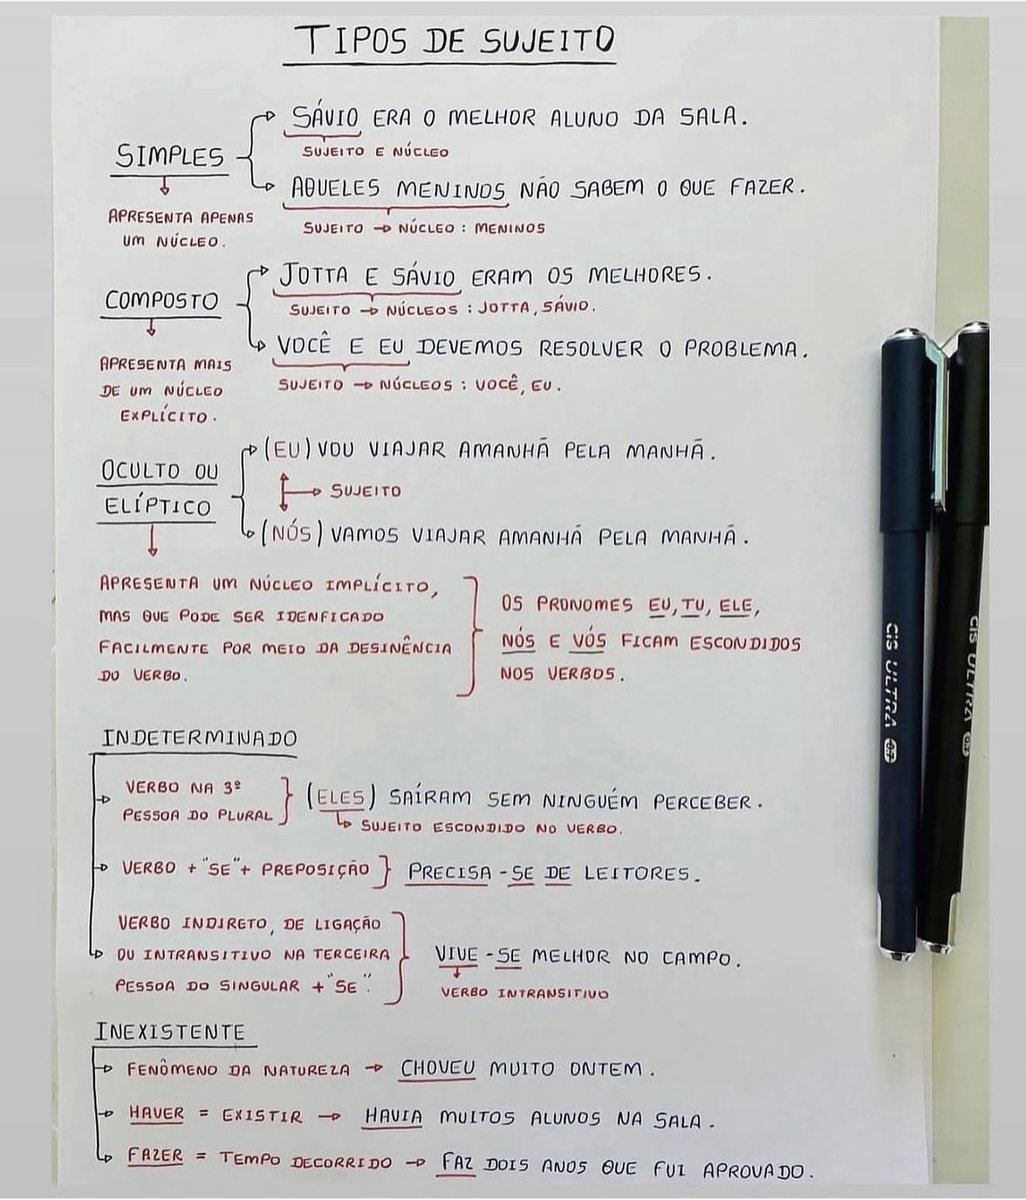 TIPOS DE SUJEITO
SIMPLES
APRESENTA APENAS
UM NÚCLEO.
SÁVIO ERA O MELHOR ALUNO DA SALA.
SUJEITO E NÚCLEO
AQUELES MENINOS NÃO SABEM O QUE FAZER.
SUJEITO → NÚCLEO : MENINOS
COMPOSTO
APRESENTA MAIS
DE UM NÚCLEO
EXPLÍCITO.
JOTTA E SÁVIO ERAM OS MELHORES.
SUJEITO → NÚCLEOS : JOTTA, SÁVIO.
VOCÊ E EU DEVEMOS RESOLVER O PROBLEMA.
SUJEITO → NÚCLEOS : VOCÊ, EU.
OCULTO OU
ELÍPTICO
(EU) VOU VIAJAR AMANHÃ PELA MANHÃ.
SUJEITO
(NÓS) VAMOS VIAJAR AMANHÃ PELA MANHÃ.
APRESENTA UM NÚCLEO IMPLÍCITO,
MAS QUE PODE SER IDENFICADO
FACILMENTE POR MEIO DA DESINÊNCIA
DO VERBO.
OS PRONOMES EU, TU, ELE,
NÓS E VÓS FICAM ESCONDIDOS
NOS VERBOS.
INDETERMINADO
VERBO NA 3ª
PESSOA DO PLURAL
(ELES) SAÍRAM SEM NINGUÉM PERCEBER.
SUJEITO ESCONDIDO NO VERBO.
VERBO + "SE" + PREPOSIÇÃO
PRECISA - SE DE LEITORES.
VERBO INDIRETO, DE LIGAÇÃO
OU INTRANSITIVO NA TERCEIRA
PESSOA DO SINGULAR + "SE".
VIVE - SE MELHOR NO CAMPO.
VERBO INTRANSITIVO
INEXISTENTE
FENÔMENO DA NATUREZA → CHOVEU MUITO ONTEM.
HAVER = EXISTIR → HAVIA MUITOS ALUNOS NA SALA.
FAZER = TEMPO DECORRIDO → FAZ DOIS ANOS QUE FUI APROVADO.
CIS ULTRA 0.7
CIS ULTRA 0.7